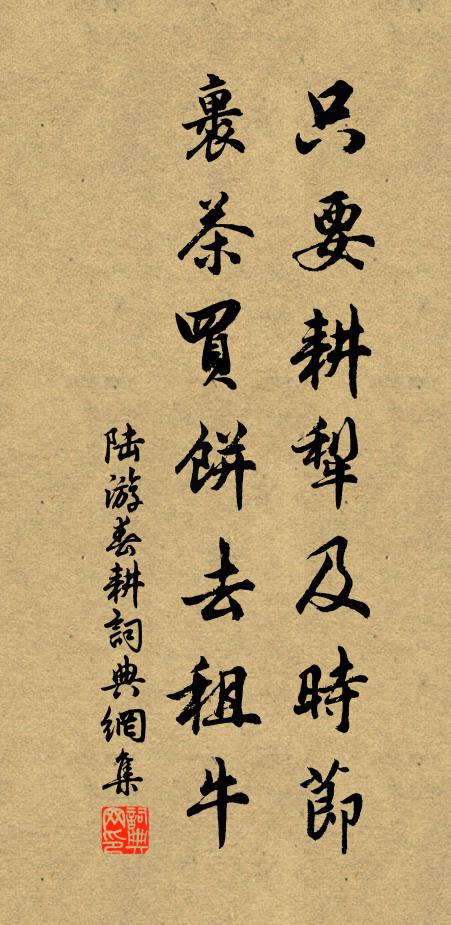 只要耕犁及時節
裹茶買餅去租牛
陆游春耕詞典網集
詞典网印